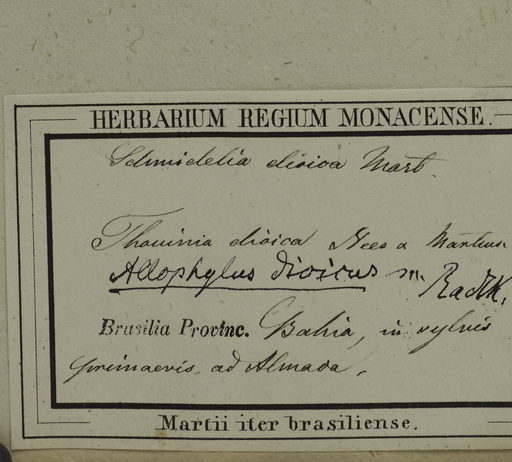 HERBARIUM REGIUM MONACENSE.
Schmidelia dioica Mart.
Thouinia dioica Nees a Martius
Allophylus dioicus m. Radlk.
Brasilia Provinc. Bahia, in sylvis
primaevis ad Almada.
Martii iter brasiliense.